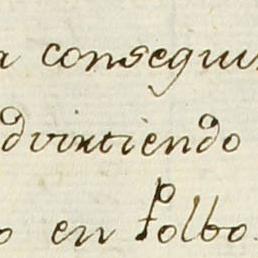 a consegui
dvirtiendo
o en Polbo